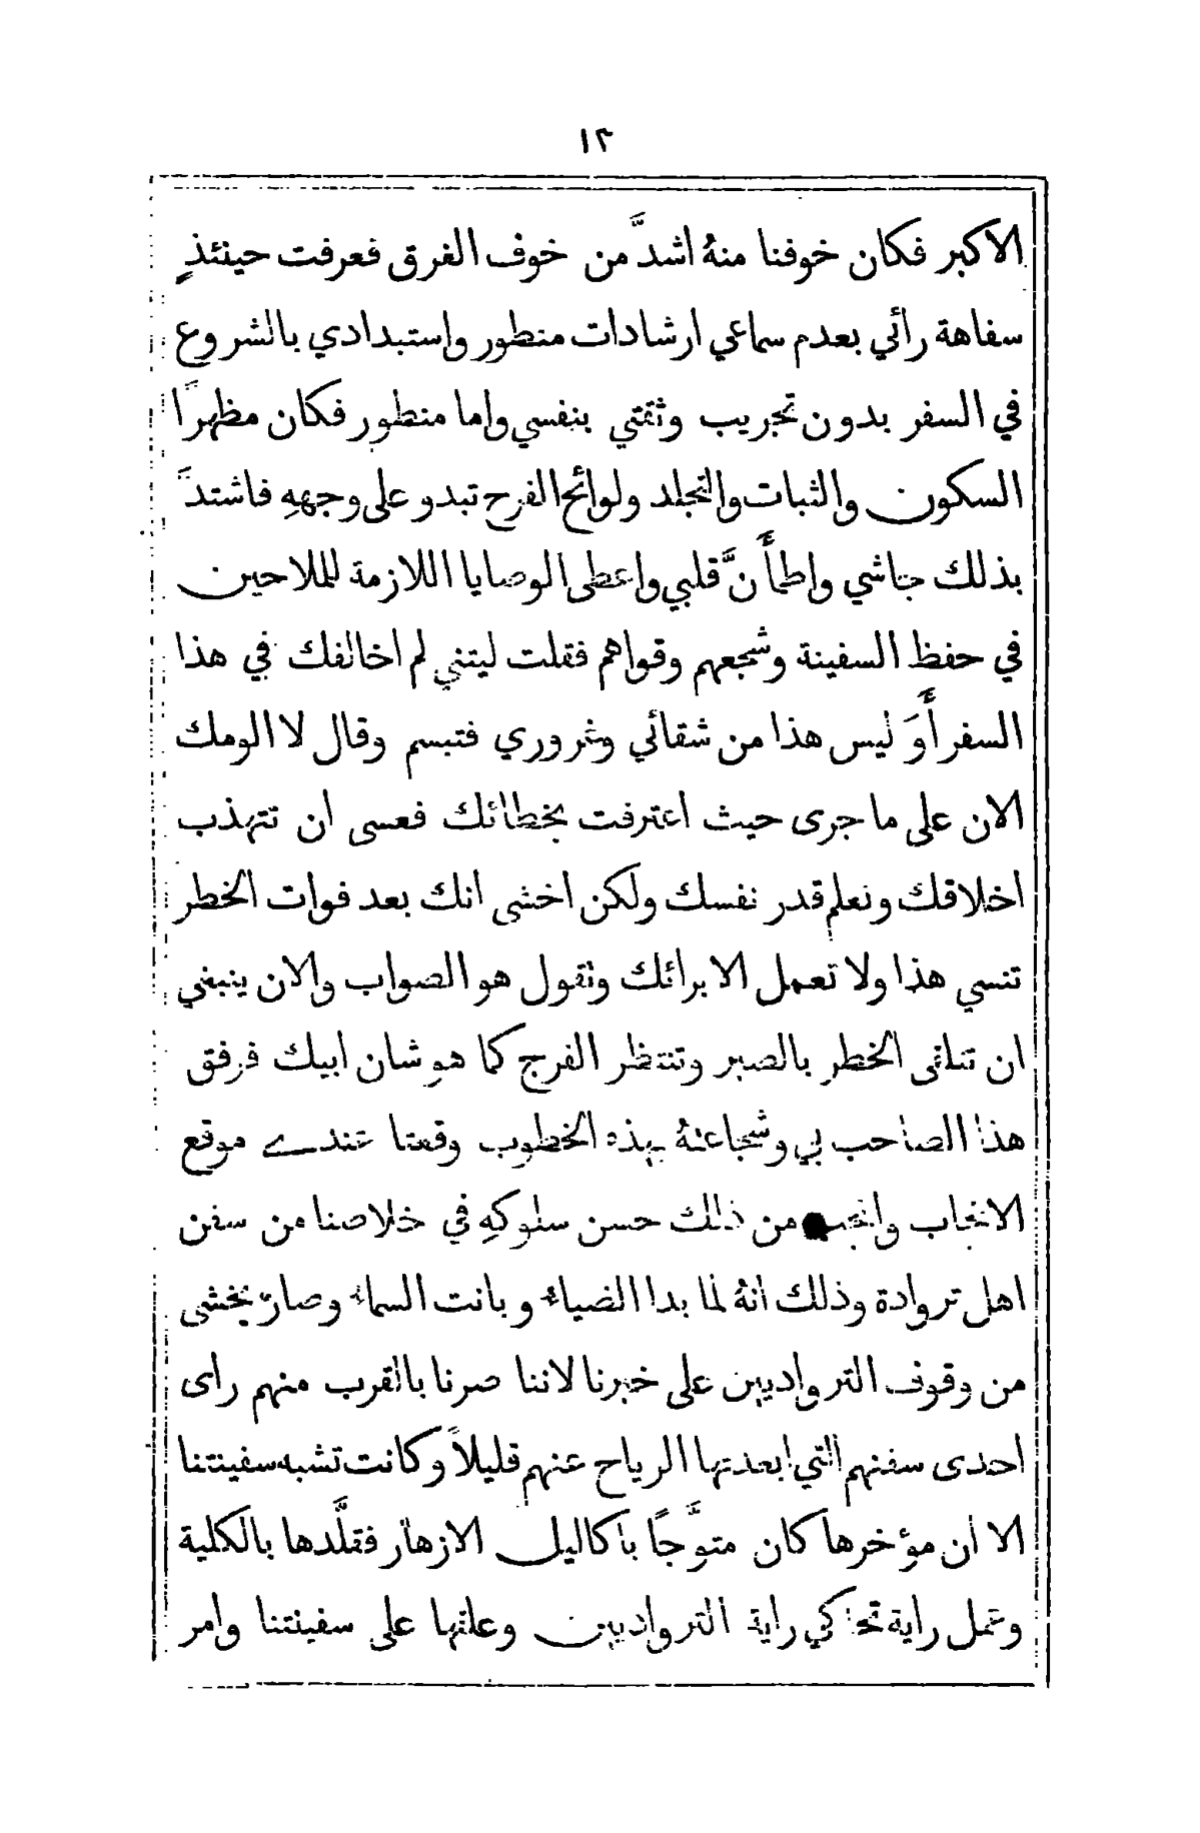 ١٢
الاكبر فكان خوفنا منهُ اشدَّ من خوف الغرق فعرفت حينئذٍ
سفاهة رائي بعدم سماعي ارشادات منطور واستبدادي بالشروع
في السفر بدون تجريب وثقتي بنفسي واما منطور فكان مظهرًا
السكون والثبات والتجلد ولوائح الفرح تبدو على وجههِ فاشتدَّ
بذلك جاشي واطمأَنَّ قلبي واعطى الوصايا اللازمة للملاحين
في حفظ السفينة وشجعهم وقواهم فقلت ليتني لم اخالفك في هذا
السفر أَوَ ليس هذا من شقائي وغروري فتبسم وقال لا الومك
الان على ما جرى حيث اعترفت بخطائك فعسى ان تتهذب
اخلاقك وتعلم قدر نفسك ولكن اخشى انك بعد فوات الخطر
تنسي هذا ولا تعمل الا برائك وتقول هو الصواب والان ينبغي
ان تتلقى الخطر بالصبر وتنتظر الفرج كما هو شان ابيك فرفق
هذا الصاحب بي وشجاعتهُ بهذه الخطوب وقعتا عندي موقع
الاعجاب واعجب من ذلك حسن سلوكهِ في خلاصنا من سفن
اهل تروادة وذلك انهُ لما بدا الضياء وبانت السماء وصار يخشى
من وقوف الترواديين على خبرنا لاننا صرنا بالقرب منهم راى
احدى سفنهم التي ابعدتها الرياح عنهم قليلاً وكانت تشبه سفينتنا
الا ان مؤخرها كان متوَّجًا باكاليل الازهار فقلَّدها بالكلية
وعمل راية تحاكي راية الترواديين وعلقها على سفينتنا وامر